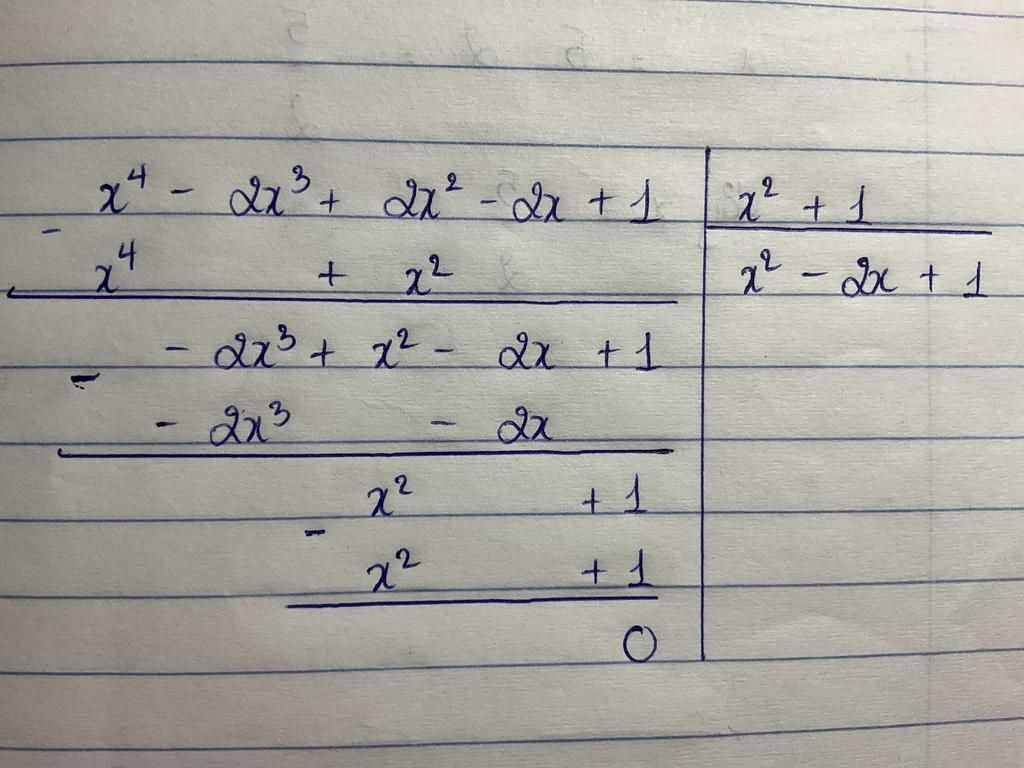 x⁴ - 2x³ + 2x² - 2x + 1 | x² + 1
-
x⁴ + x² | x² - 2x + 1
- 2x³ + x² - 2x + 1
-
- 2x³ - 2x
x² + 1
-
x² + 1
0